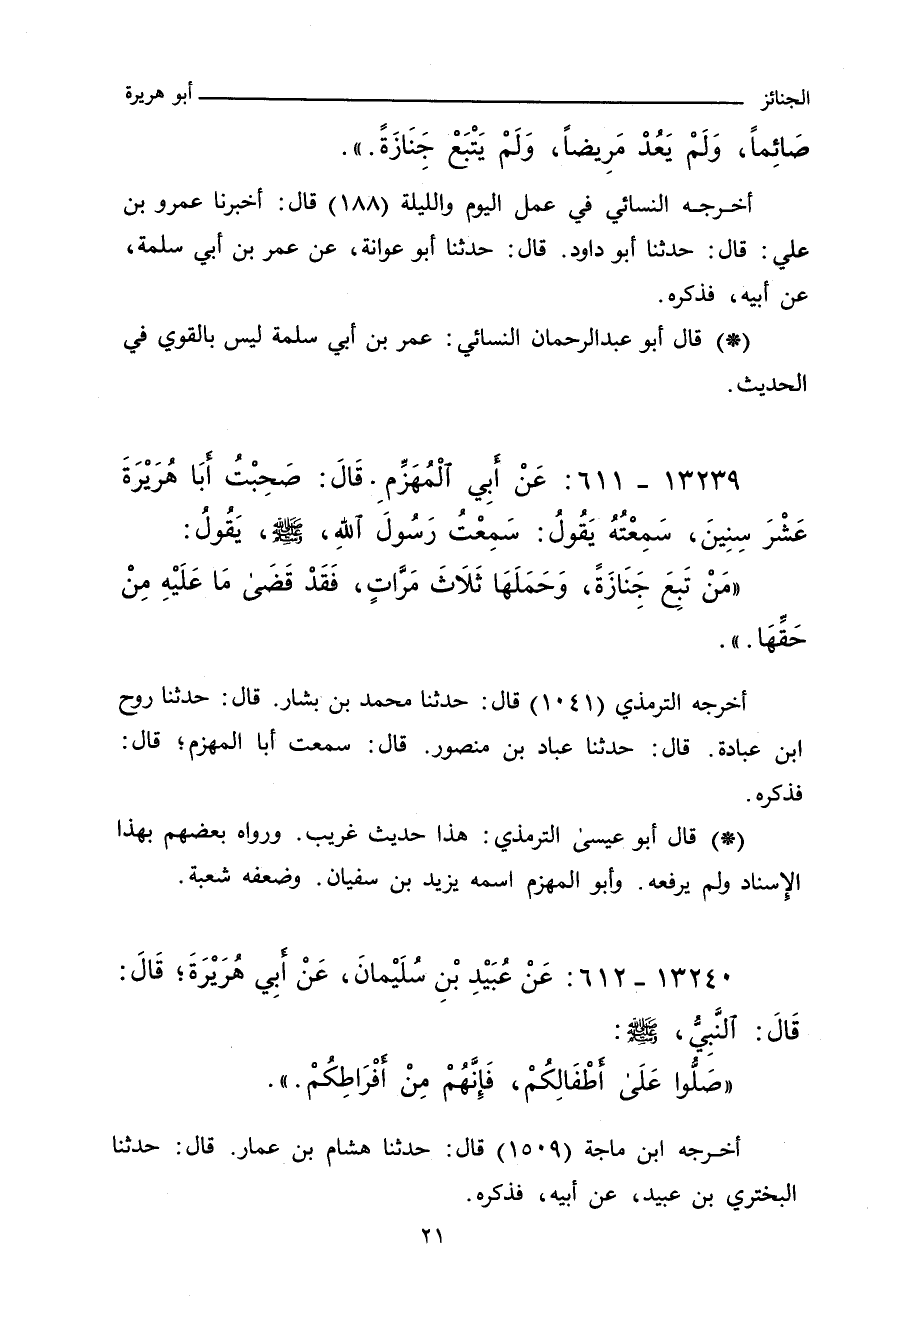 الجنائز ــــــــــــ أبو هريرة
صَائِماً، وَلَمْ يَعُدْ مَرِيضاً، وَلَمْ يَتْبَعْ جَنَازَةً.».
أخرجه النسائي في عمل اليوم والليلة (١٨٨) قال: أخبرنا عمرو بن
علي: قال: حدثنا أبو داود. قال: حدثنا أبو عوانة، عن عمر بن أبي سلمة،
عن أبيه، فذكره.
(*) قال أبو عبدالرحمان النسائي: عمر بن أبي سلمة ليس بالقوي في
الحديث.
١٣٢٣٩ - ٦١١: عَنْ أَبِي ٱلْمُهَزِّمِ. قَالَ: صَحِبْتُ أَبَا هُرَيْرَةَ
عَشْرَ سِنِينَ، سَمِعْتُهُ يَقُولُ: سَمِعْتُ رَسُولَ ٱللهِ، ﷺ، يَقُولُ:
«مَنْ تَبِعَ جِنَازَةً، وَحَمَلَهَا ثَلَاثَ مَرَّاتٍ، فَقَدْ قَضَىٰ مَا عَلَيْهِ مِنْ
حَقِّهَا.».
أخرجه الترمذي (١٠٤١) قال: حدثنا محمد بن بشار. قال: حدثنا روح
ابن عبادة. قال: حدثنا عباد بن منصور. قال: سمعت أبا المهزم؛ قال:
فذكره.
(*) قال أبو عيسىٰ الترمذي: هذا حديث غريب. ورواه بعضهم بهذا
الإسناد ولم يرفعه. وأبو المهزم اسمه يزيد بن سفيان. وضعفه شعبة.
١٣٢٤٠ - ٦١٢: عَنْ عُبَيْدِ بْنِ سُلَيْمانَ، عَنْ أَبِي هُرَيْرَةَ؛ قَالَ:
قَالَ: ٱلنَّبِيُّ، ﷺ:
«صَلُّوا عَلَىٰ أَطْفَالِكُمْ، فَإِنَّهُمْ مِنْ أَفْرَاطِكُمْ.».
أخرجه ابن ماجة (١٥٠٩) قال: حدثنا هشام بن عمار. قال: حدثنا
البختري بن عبيد، عن أبيه، فذكره.
٢١